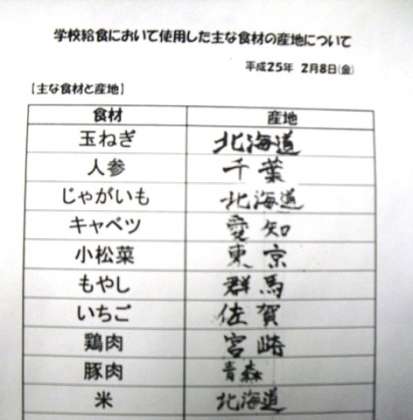 学校給食において使用した主な食材の産地について
平成25年 2月8日(金)
【主な食材と産地】
食材 産地
玉ねぎ 北海道
人参 千葉
じゃがいも 北海道
キャベツ 愛知
小松菜 東京
もやし 群馬
いちご 佐賀
鶏肉 宮崎
豚肉 青森
米 北海道